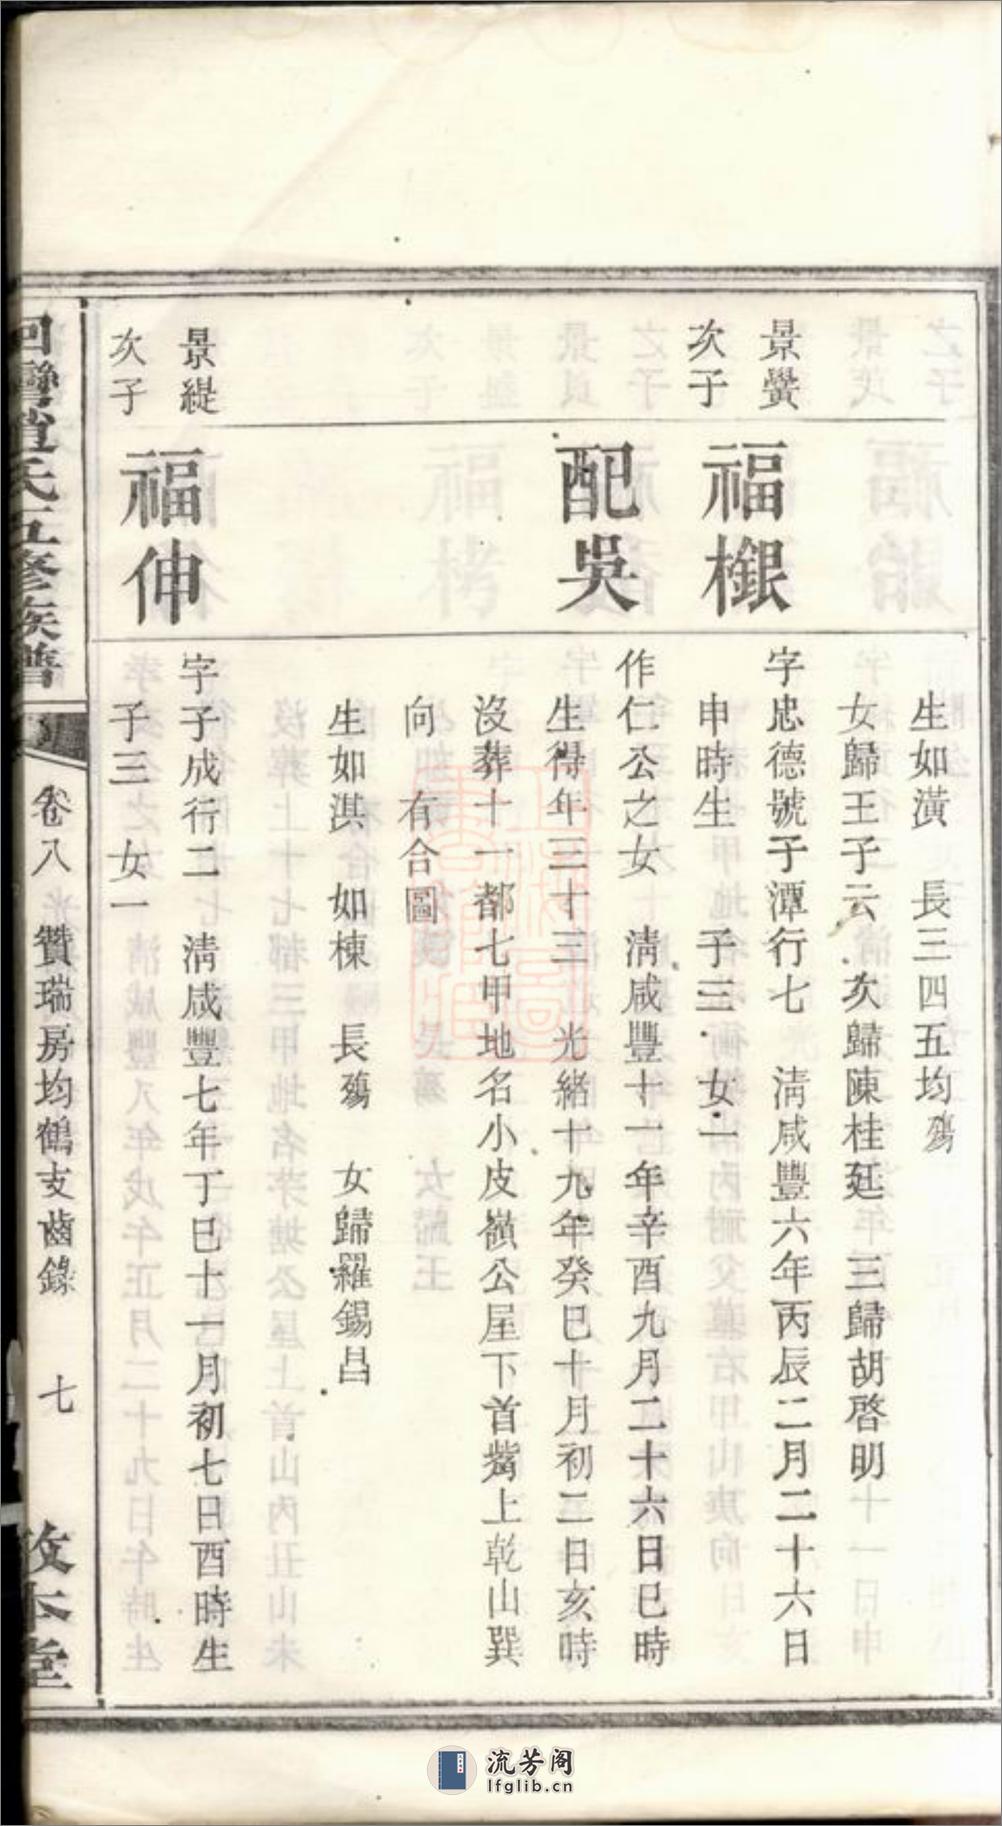 生如潢　長三四五均殤
女歸王子云　次歸陳桂廷　三歸胡啓明
景黌
次子
福檭
字忠德號于潭行七　淸咸豐六年丙辰二月二十六日
申時生　子三　女一
配吳
作仁公之女　淸咸豐十一年辛酉九月二十六日巳時
生得年三十三　光緒十九年癸巳十月初二日亥時
沒葬十一都七甲地名小皮嶺公屋下首嘴上乾山巽
向　有合圖
生如淇　如棟　長殤　女歸羅錫昌
景緹
次子
福伸
字子成行二　淸咸豐七年丁巳十一月初七日酉時生
子三　女一
趙氏五修族譜　卷八　贊瑞房均鶴支齒錄　七　敦本堂
流芳阁
lfglib.cn